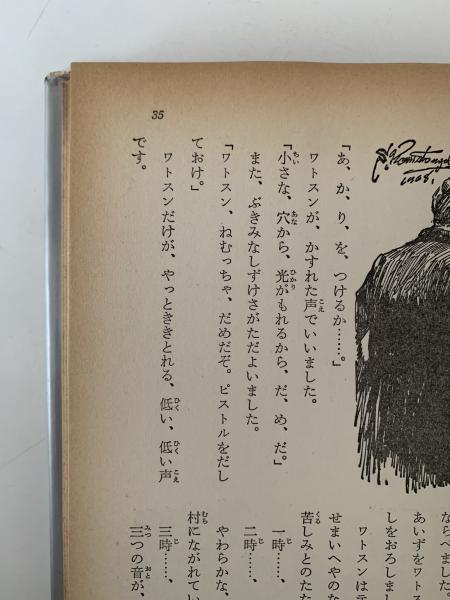 35
「あ、か、り、を、つけるか……。」
ワトスンが、かすれた声でいいました。
「小さな、穴から、光がもれるから、だ、め、だ。」
また、ぶきみなしずけさがただよいました。
「ワトスン、ねむっちゃ、だめだぞ。ピストルをだし
ておけ。」
ワトスンだけが、やっとききとれる、低い、低い声
です。
ならべました。
あいずをワトス
しをおろしま
ワトスンは
せまいへやのな
苦しみとのたた
一時……、
二時……、
やわらかな、
村にながれてい
三時……、
三つの音が、